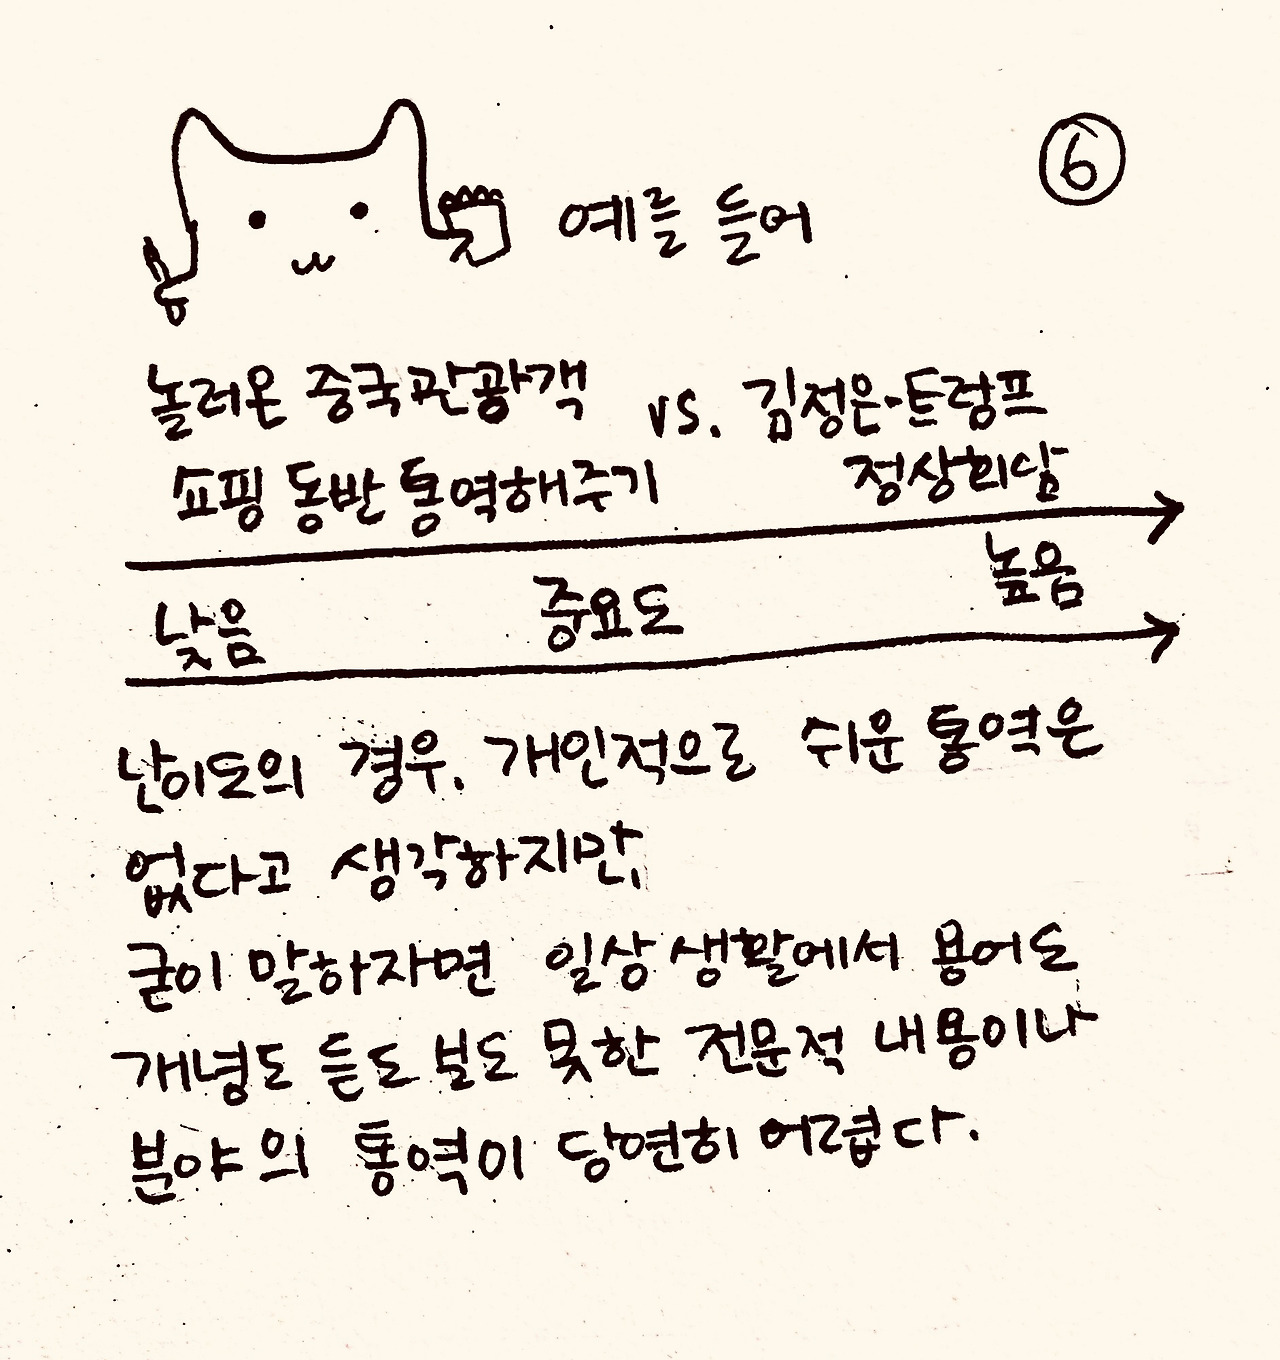 ⑥
예를 들어
놀러온 중국관광객 vs. 김정은-트럼프
쇼핑 동반 통역해주기 정상회담
낮음 중요도 높음
난이도의 경우, 개인적으로 쉬운 통역은
없다고 생각하지만,
굳이 말하자면 일상생활에서 용어도
개념도 듣도 보도 못한 전문적 내용이나
분야의 통역이 당연히 어렵다.